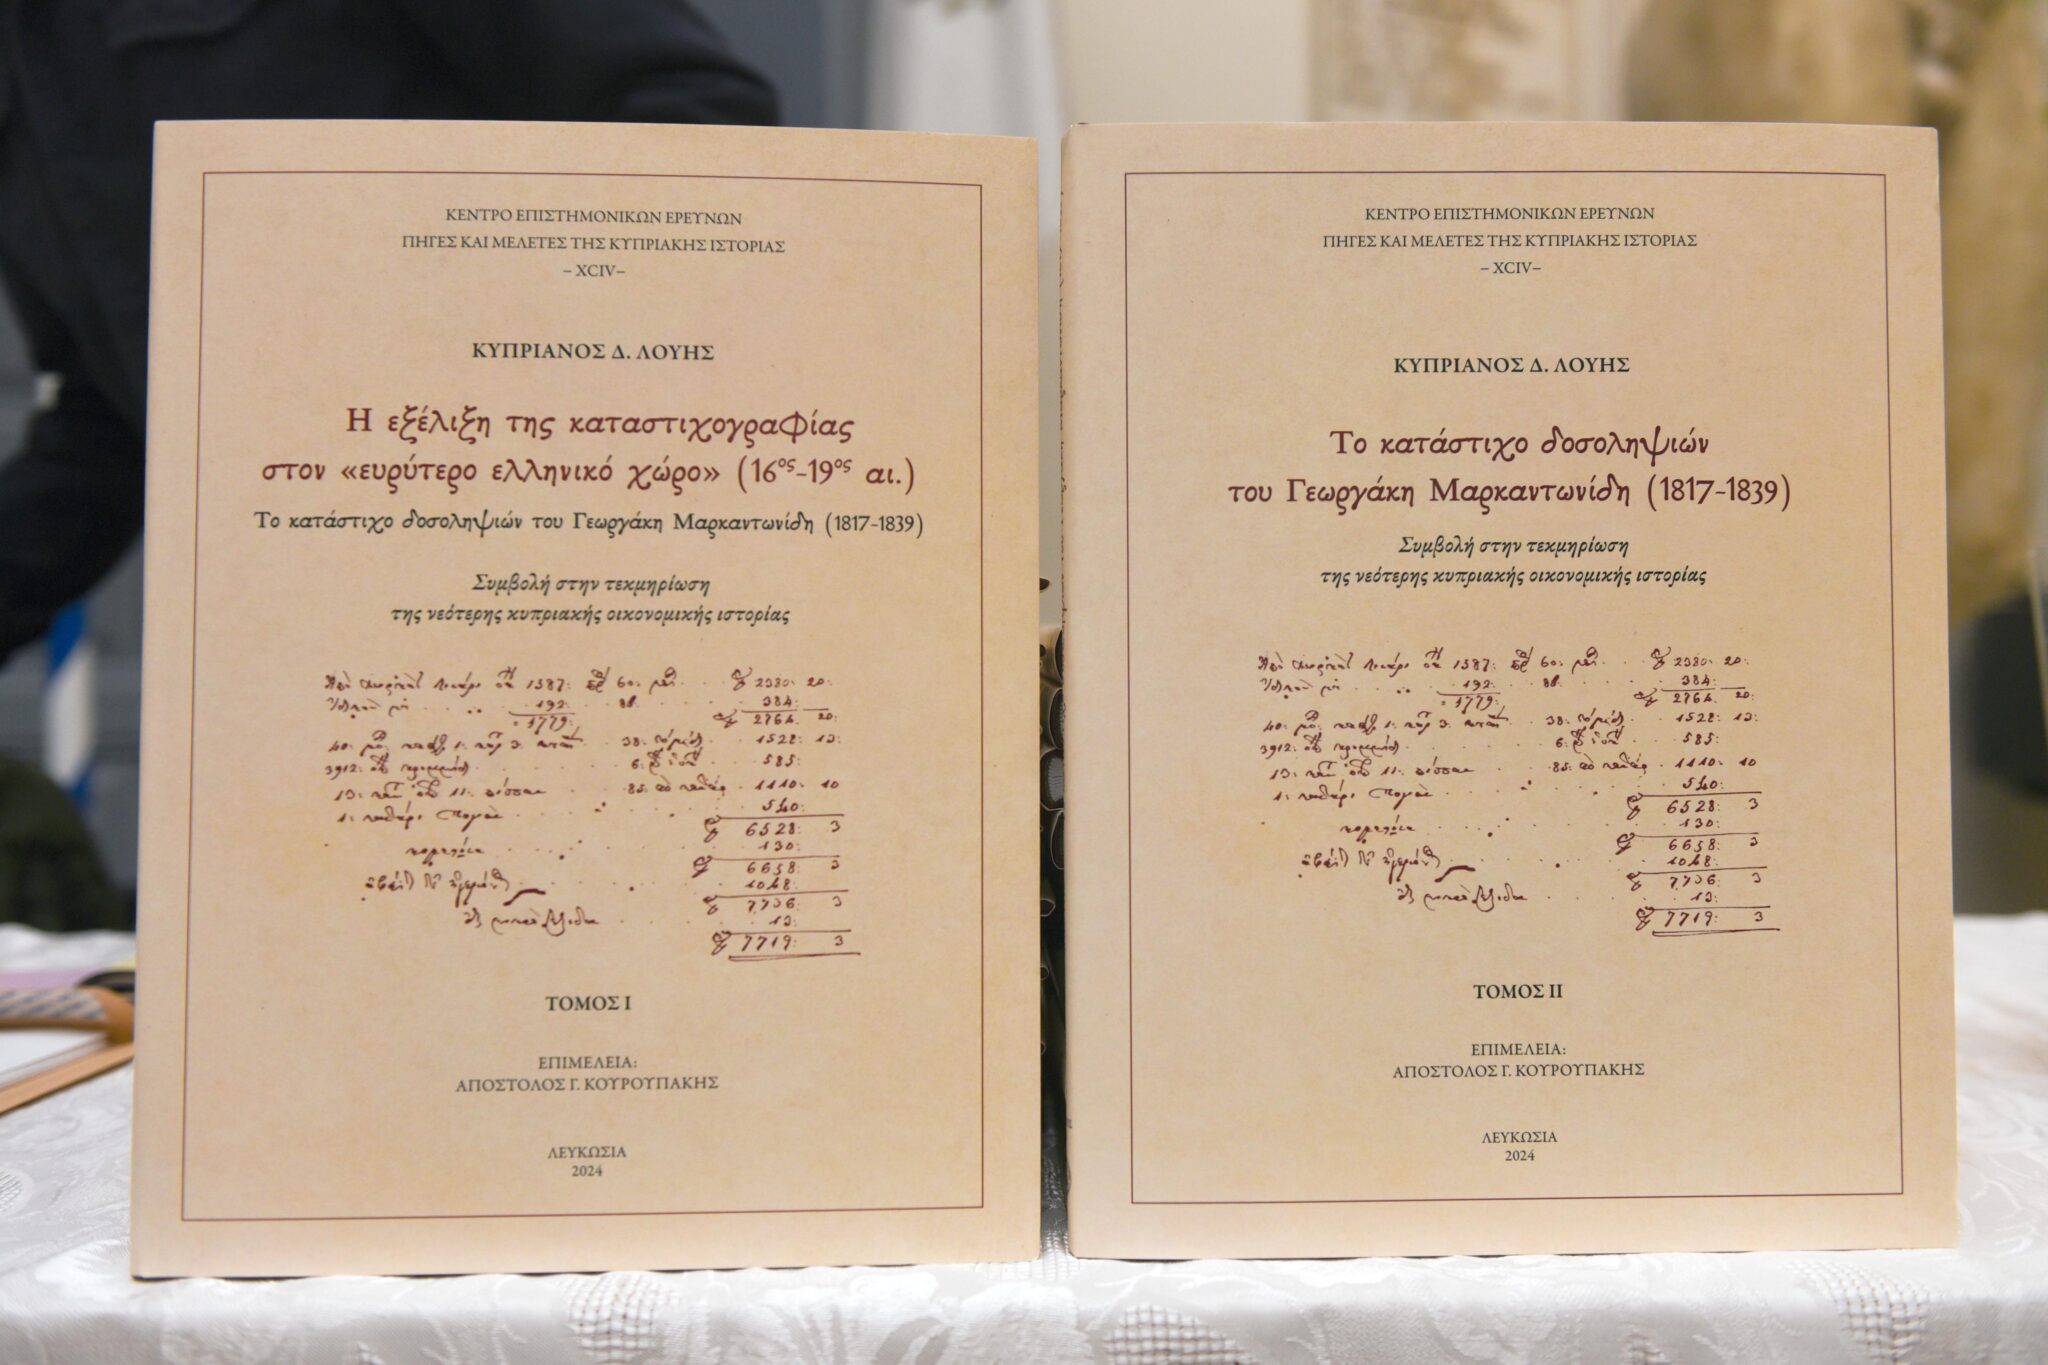 ΚΕΝΤΡΟ ΕΠΙΣΤΗΜΟΝΙΚΩΝ ΕΡΕΥΝΩΝ
ΠΗΓΕΣ ΚΑΙ ΜΕΛΕΤΕΣ ΤΗΣ ΚΥΠΡΙΑΚΗΣ ΙΣΤΟΡΙΑΣ
– XCIV–
ΚΥΠΡΙΑΝΟΣ Δ. ΛΟΥΗΣ
Η εξέλιξη της καταστιχογραφίας
στον «ευρύτερο ελληνικό χώρο» (16ος-19ος αι.)
Το κατάστιχο δοσοληψιών του Γεωργάκη Μαρκαντωνίδη (1817-1839)
Συμβολή στην τεκμηρίωση
της νεότερης κυπριακής οικονομικής ιστορίας
1387: 60: 2380: 20:
192: 384:
1779: 2764: 20:
40: 1: 3: 38: 1528: 13:
3912: 6: 585:
13: 11: 85: 1110: 10
1: 540:
6528: 3
130:
6658: 3
1048:
7706: 3
13:
7719: 3
ΤΟΜΟΣ Ι
ΕΠΙΜΕΛΕΙΑ:
ΑΠΟΣΤΟΛΟΣ Γ. ΚΟΥΡΟΥΠΑΚΗΣ
ΛΕΥΚΩΣΙΑ
2024
ΚΕΝΤΡΟ ΕΠΙΣΤΗΜΟΝΙΚΩΝ ΕΡΕΥΝΩΝ
ΠΗΓΕΣ ΚΑΙ ΜΕΛΕΤΕΣ ΤΗΣ ΚΥΠΡΙΑΚΗΣ ΙΣΤΟΡΙΑΣ
– XCIV–
ΚΥΠΡΙΑΝΟΣ Δ. ΛΟΥΗΣ
Το κατάστιχο δοσοληψιών
του Γεωργάκη Μαρκαντωνίδη (1817-1839)
Συμβολή στην τεκμηρίωση
της νεότερης κυπριακής οικονομικής ιστορίας
1387: 60: 2380: 20:
192: 384:
1779: 2764: 20:
40: 1: 3: 38: 1528: 13:
3912: 6: 585:
13: 11: 85: 1110: 10
1: 540:
6528: 3
130:
6658: 3
1048:
7706: 3
13:
7719: 3
ΤΟΜΟΣ ΙΙ
ΕΠΙΜΕΛΕΙΑ:
ΑΠΟΣΤΟΛΟΣ Γ. ΚΟΥΡΟΥΠΑΚΗΣ
ΛΕΥΚΩΣΙΑ
2024